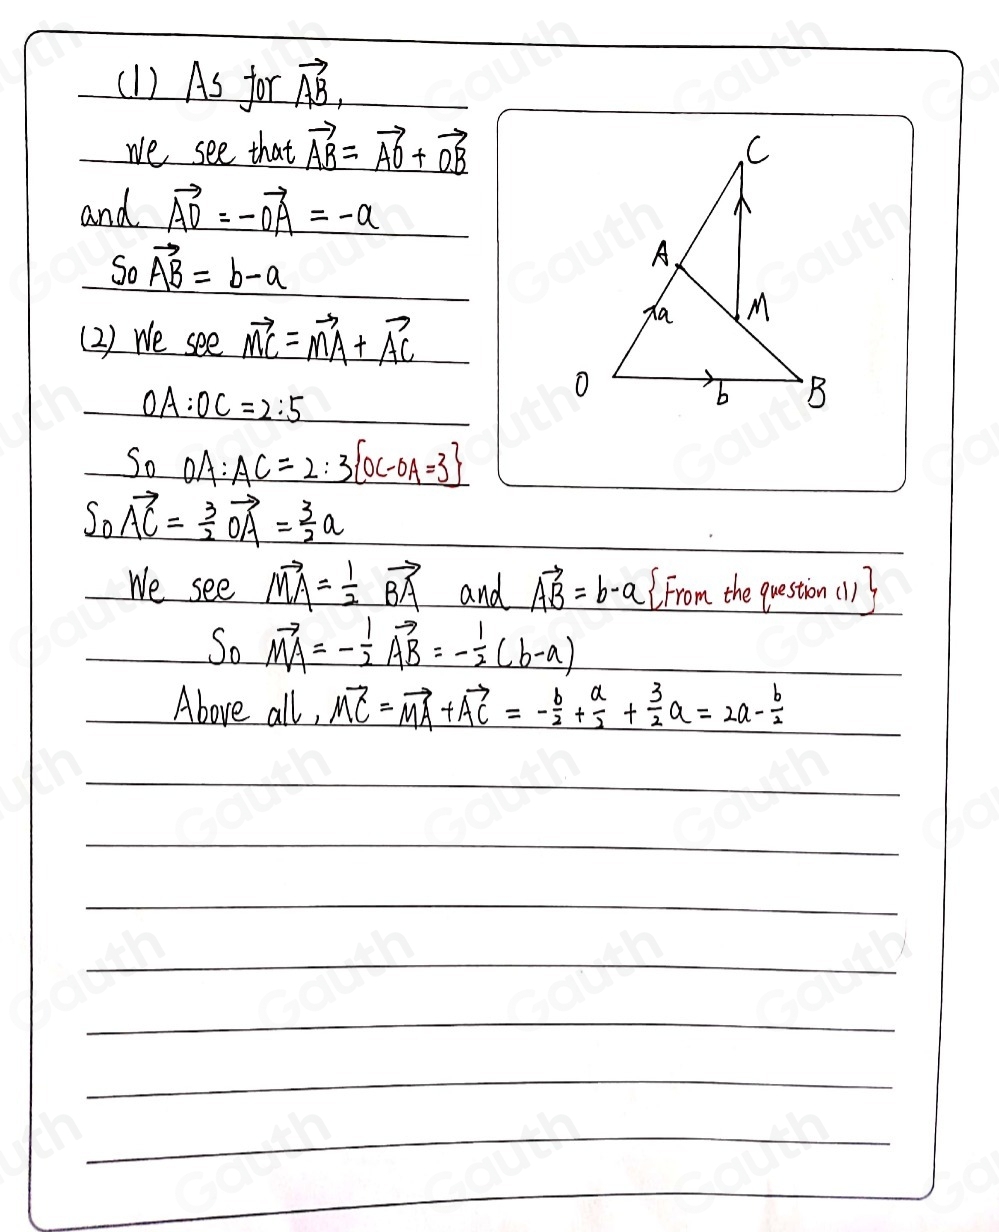 (1) As for AB⃗,
we see that AB⃗ = AO⃗ + OB⃗
and AO⃗ = -OA⃗ = -a
So AB⃗ = b-a
(2) We see MC⃗ = MA⃗ + AC⃗
OA:OC=2:5
So OA:AC=2:3{OC-OA=3}
So AC⃗ = 3/2 OA⃗ = 3/2 a
We see MA⃗ = 1/2 BA⃗ and AB⃗ = b-a{From the question (1)}
So MA⃗ = -1/2 AB⃗ = -1/2 (b-a)
Above all, MC⃗ = MA⃗ + AC⃗ = -b/2 + a/2 + 3/2 a = 2a - b/2
C
A
a
M
O
b
B
Gauth